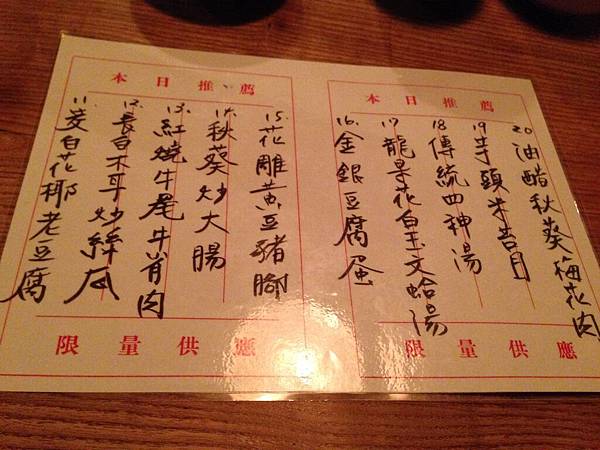 本日推薦
11. 茭白花椰老豆腐
12. 長白木耳炒絲瓜
13. 紅燒牛尾牛肉
14. 秋葵炒大腸
15. 花雕黃豆豬腳
限量供應
本日推薦
16. 金銀豆腐蛋
17 龍果花白玉文蛤湯
18 傳統四神湯
19 芋頭米苔目
20 油醋秋葵梅花肉
限量供應